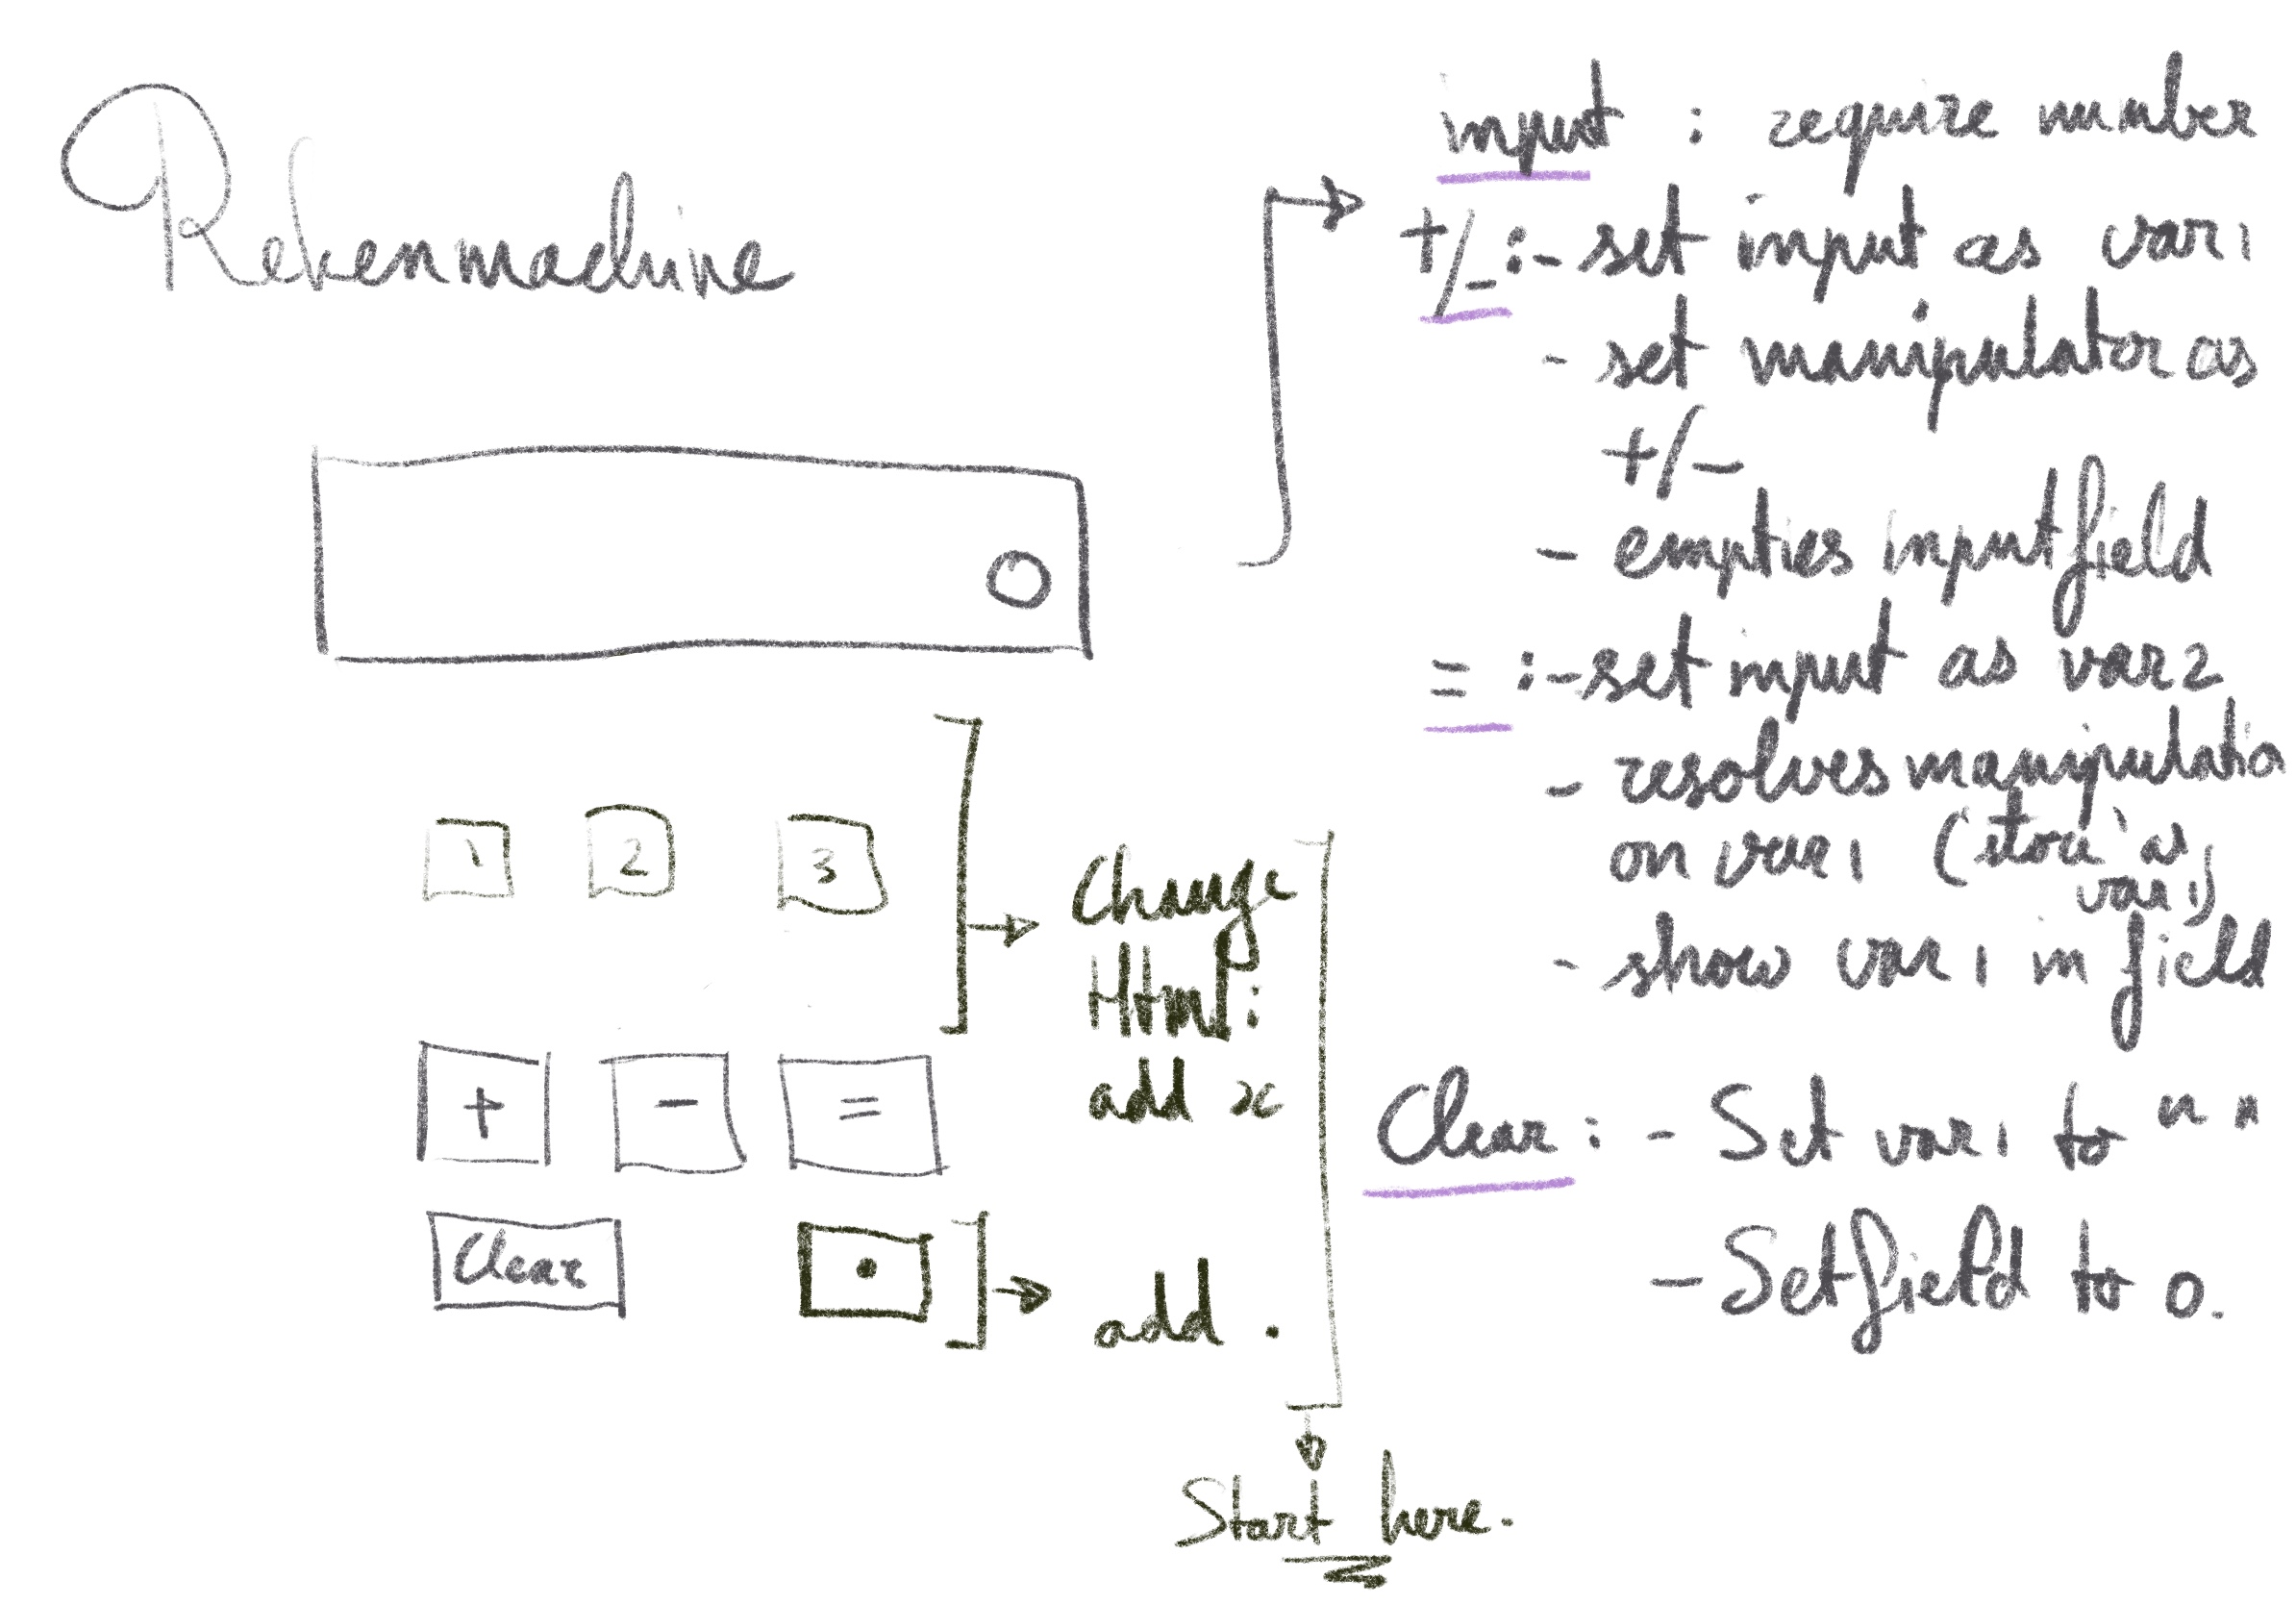 Rekenmachine
0
1 2 3
+ - =
Clear .
Change
Html:
add x
add .
Start here.
input : require number
+/- :- set input as var 1
- set manipulator as
+/-
- empties inputfield
= :- set input as var 2
- resolves manipulatio
on var 1 ('store' as
var 1)
- show var 1 in field
Clear : - Set var 1 to " "
- Set field to 0.